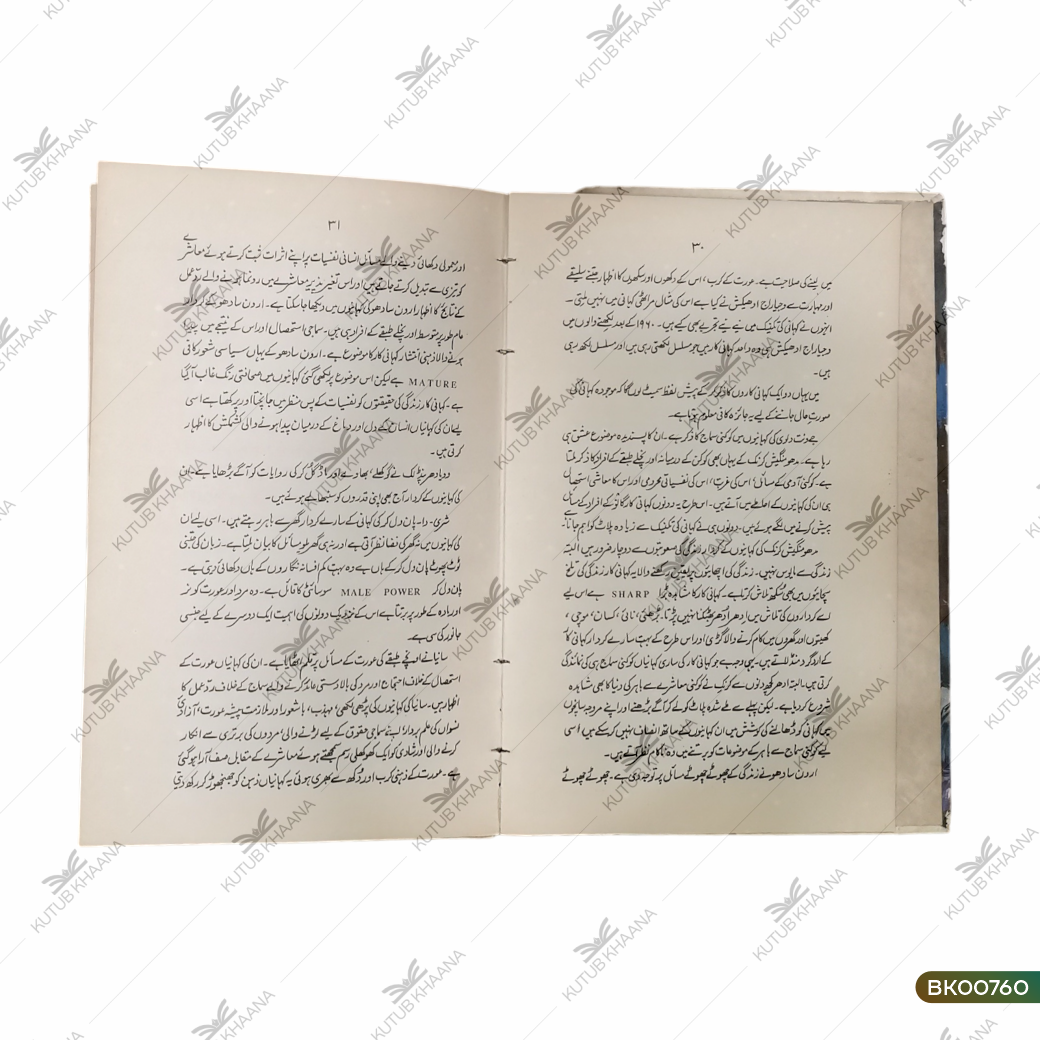 ۳۰
میں لینے کی صلاحیت ہے۔ عورت کے کرب، اس کے دکھوں اور سکھوں کا اظہار جتنے سلیقے
اور مہارت سے وجیاراج ادھیکش نے کیا ہے اس کی مثال مراٹھی کہانی میں نہیں ملتی۔
انہوں نے کہانی کی تکنیک میں نئے نئے تجربے بھی کیے ہیں۔ ۱۹۶۰ کے بعد لکھنے والوں میں
وجیاراج ادھیکش ہی وہ واحد کہانی کار ہیں جو مسلسل لکھتی رہی ہیں اور مسلسل لکھ رہی
ہیں۔
میں یہاں دو ایک کہانی کاروں کا ذکر کر کے پیش لفظ سمیٹ لوں گا کہ موجودہ کہانی کی
صورتِ حال جاننے کے لیے یہ جائزہ کافی معلوم ہوتا ہے۔
جے ونت دلوی کی کہانیوں میں کوکنی سماج کا ذکر ہے۔ ان کا پسندیدہ موضوع عشق ہی
رہا ہے۔ مدھو منگیش کرنک کے یہاں بھی کوکن کے درمیانہ اور نچلے طبقے کے افراد کا ذکر ملتا
ہے۔ کوکنی آدمی کے مسائل، اس کی غربت، اس کی نفسیاتی محرومی اور اس کا معاشی استحصال
ہی ان کی کہانیوں کے احاطے میں آتے ہیں۔ اس طرح یہ دونوں کہانی کار گاؤں کے افراد کے مسائل
پیش کرنے میں لگے ہوئے ہیں۔ دونوں ہی نے کہانی کی تکنیک سے زیادہ پلاٹ کو اہم جانا۔
مدھو منگیش کرنک کی کہانیوں کے کردار زندگی کی صعوبتوں سے دوچار ضرور ہیں البتہ
زندگی سے مایوس نہیں۔ زندگی کی اچھائیوں پر یقین رکھنے والا یہ کہانی کار زندگی کی تلخ
سچائیوں میں بھی سکھ تلاش کرتا ہے۔ کہانی کار کا مشاہدہ بڑا SHARP ہے اس لیے
اسے کرداروں کی تلاش میں ادھر اُدھر بھٹکنا نہیں پڑتا۔ بڑھئی، نائی، کسان، موچی،
کھیتوں اور گھروں میں کام کرنے والا گڑی اور اس طرح کے بہت سارے کردار کہانی کار
کے اردگرد منڈلاتے ہیں۔ یہی وجہ ہے جو کہانی کار کی ساری کہانیاں کوکنی سماج ہی کی نمائندگی
کرتی ہیں۔ البتہ ادھر کچھ دنوں سے کرنک نے کوکنی معاشرے سے باہر کی دنیا کا بھی مشاہدہ
شروع کر دیا ہے۔ لیکن پہلے سے طے شدہ پلاٹ کو لے کر آگے بڑھنے اور اپنے مروجہ سانچوں
میں کہانی کو ڈھالنے کی کوشش میں ان کہانیوں کے ساتھ انصاف نہیں کر سکے ہیں اسی
لیے کوکنی سماج سے باہر کے موضوعات کو برتنے میں وہ ناکام نظر آتے ہیں۔
ارون سادھو نے زندگی کے چھوٹے چھوٹے مسائل پر توجہ دی ہے۔ چھوٹے چھوٹے
۳۱
اور معمولی دکھائی دینے والے مسائل انسانی نفسیات پر اپنے اثرات ثبت کرتے ہوئے معاشرے
کو تیزی سے تبدیل کرتے جاتے ہیں اور اس تغیر پذیر معاشرے میں رونما ہونے والے ردِّعمل
کے نتائج کا اظہار ارون سادھو کی کہانیوں میں دیکھا جا سکتا ہے۔ ارون سادھو کے کردار
عام طور پر متوسط اور نچلے طبقے کے افراد ہی ہیں۔ سماجی استحصال اور اس کے نتیجے میں پیدا
ہونے والا ذہنی انتشار کہانی کار کا موضوع ہے۔ ارون سادھو کے یہاں سیاسی شعور کافی
MATURE ہے لیکن اس موضوع پر لکھی گئی کہانیوں میں صحافتی رنگ غالب آ گیا
ہے۔ کہانی کار زندگی کی حقیقتوں کو نفسیات کے پس منظر میں جانچتا اور پرکھتا ہے اسی
لیے ان کی کہانیاں انسان کے دل اور دماغ کے درمیان پیدا ہونے والی کشمکش کا اظہار
کرتی ہیں۔
ودیادھر پنڈلک نے گوکھلے، بھاوے اور ماڈگلکر کی روایات کو آگے بڑھایا ہے۔ ان
کی کہانیوں کے کردار آج بھی اپنی قدروں کو سنبھالے ہوئے ہیں۔
شری۔ دا۔ پان ول کر کی کہانی کے سارے کردار گھر سے باہر رہتے ہیں۔ اسی لیے ان
کی کہانیوں میں نہ گھر کی فضا نظر آتی ہے اور نہ ہی گھریلو مسائل کا بیان ملتا ہے۔ زبان کی جتنی
توڑ پھوڑ پان ول کر کے ہاں ہے وہ بہت کم افسانہ نگاروں کے ہاں دکھائی دیتی ہے۔
پان ول کر MALE POWER سوسائٹی کا قائل ہے۔ وہ مرد اور عورت کو نر
اور مادہ کے طور پر برتتا ہے اس کے نزدیک دونوں کی اہمیت ایک دوسرے کے لیے جنسی
جانور کی سی ہے۔
سانیا نے اونچے طبقے کی عورت کے مسائل پر قلم اٹھایا ہے۔ ان کی کہانیاں عورت کے
استحصال کے خلاف احتجاج اور مرد کی بالادستی عائد کرنے والے سماج کے خلاف ردِّعمل کا
اظہار ہیں۔ سانیا کی کہانیوں کی پڑھی لکھی، مہذب، باشعور اور ملازمت پیشہ عورت، آزادیٔ
نسواں کی علم بردار اپنے سماجی حقوق کے لیے لڑنے والی، مردوں کی برتری سے انکار
کرنے والی اور شادی کو ایک کھوکھلی رسم سمجھتے ہوئے معاشرے کے مقابل صف آرا ہو گئی
ہے۔ عورت کے ذہنی کرب اور دُکھ سے بھری ہوئی یہ کہانیاں ذہن کو جھنجھوڑ کر رکھ دیتی
BK00760